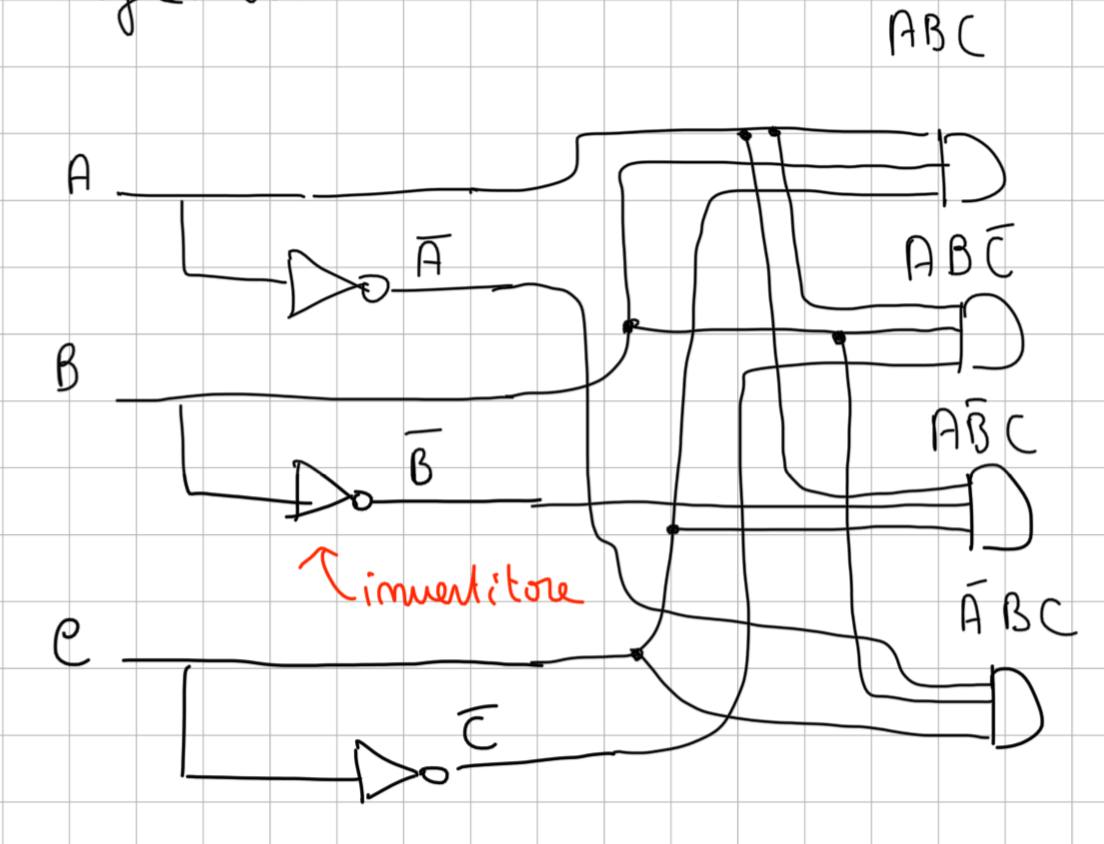 ABC
A
A̅
ABC̅
B
AB̅C
B̅
invertitore
A̅BC
C
C̅